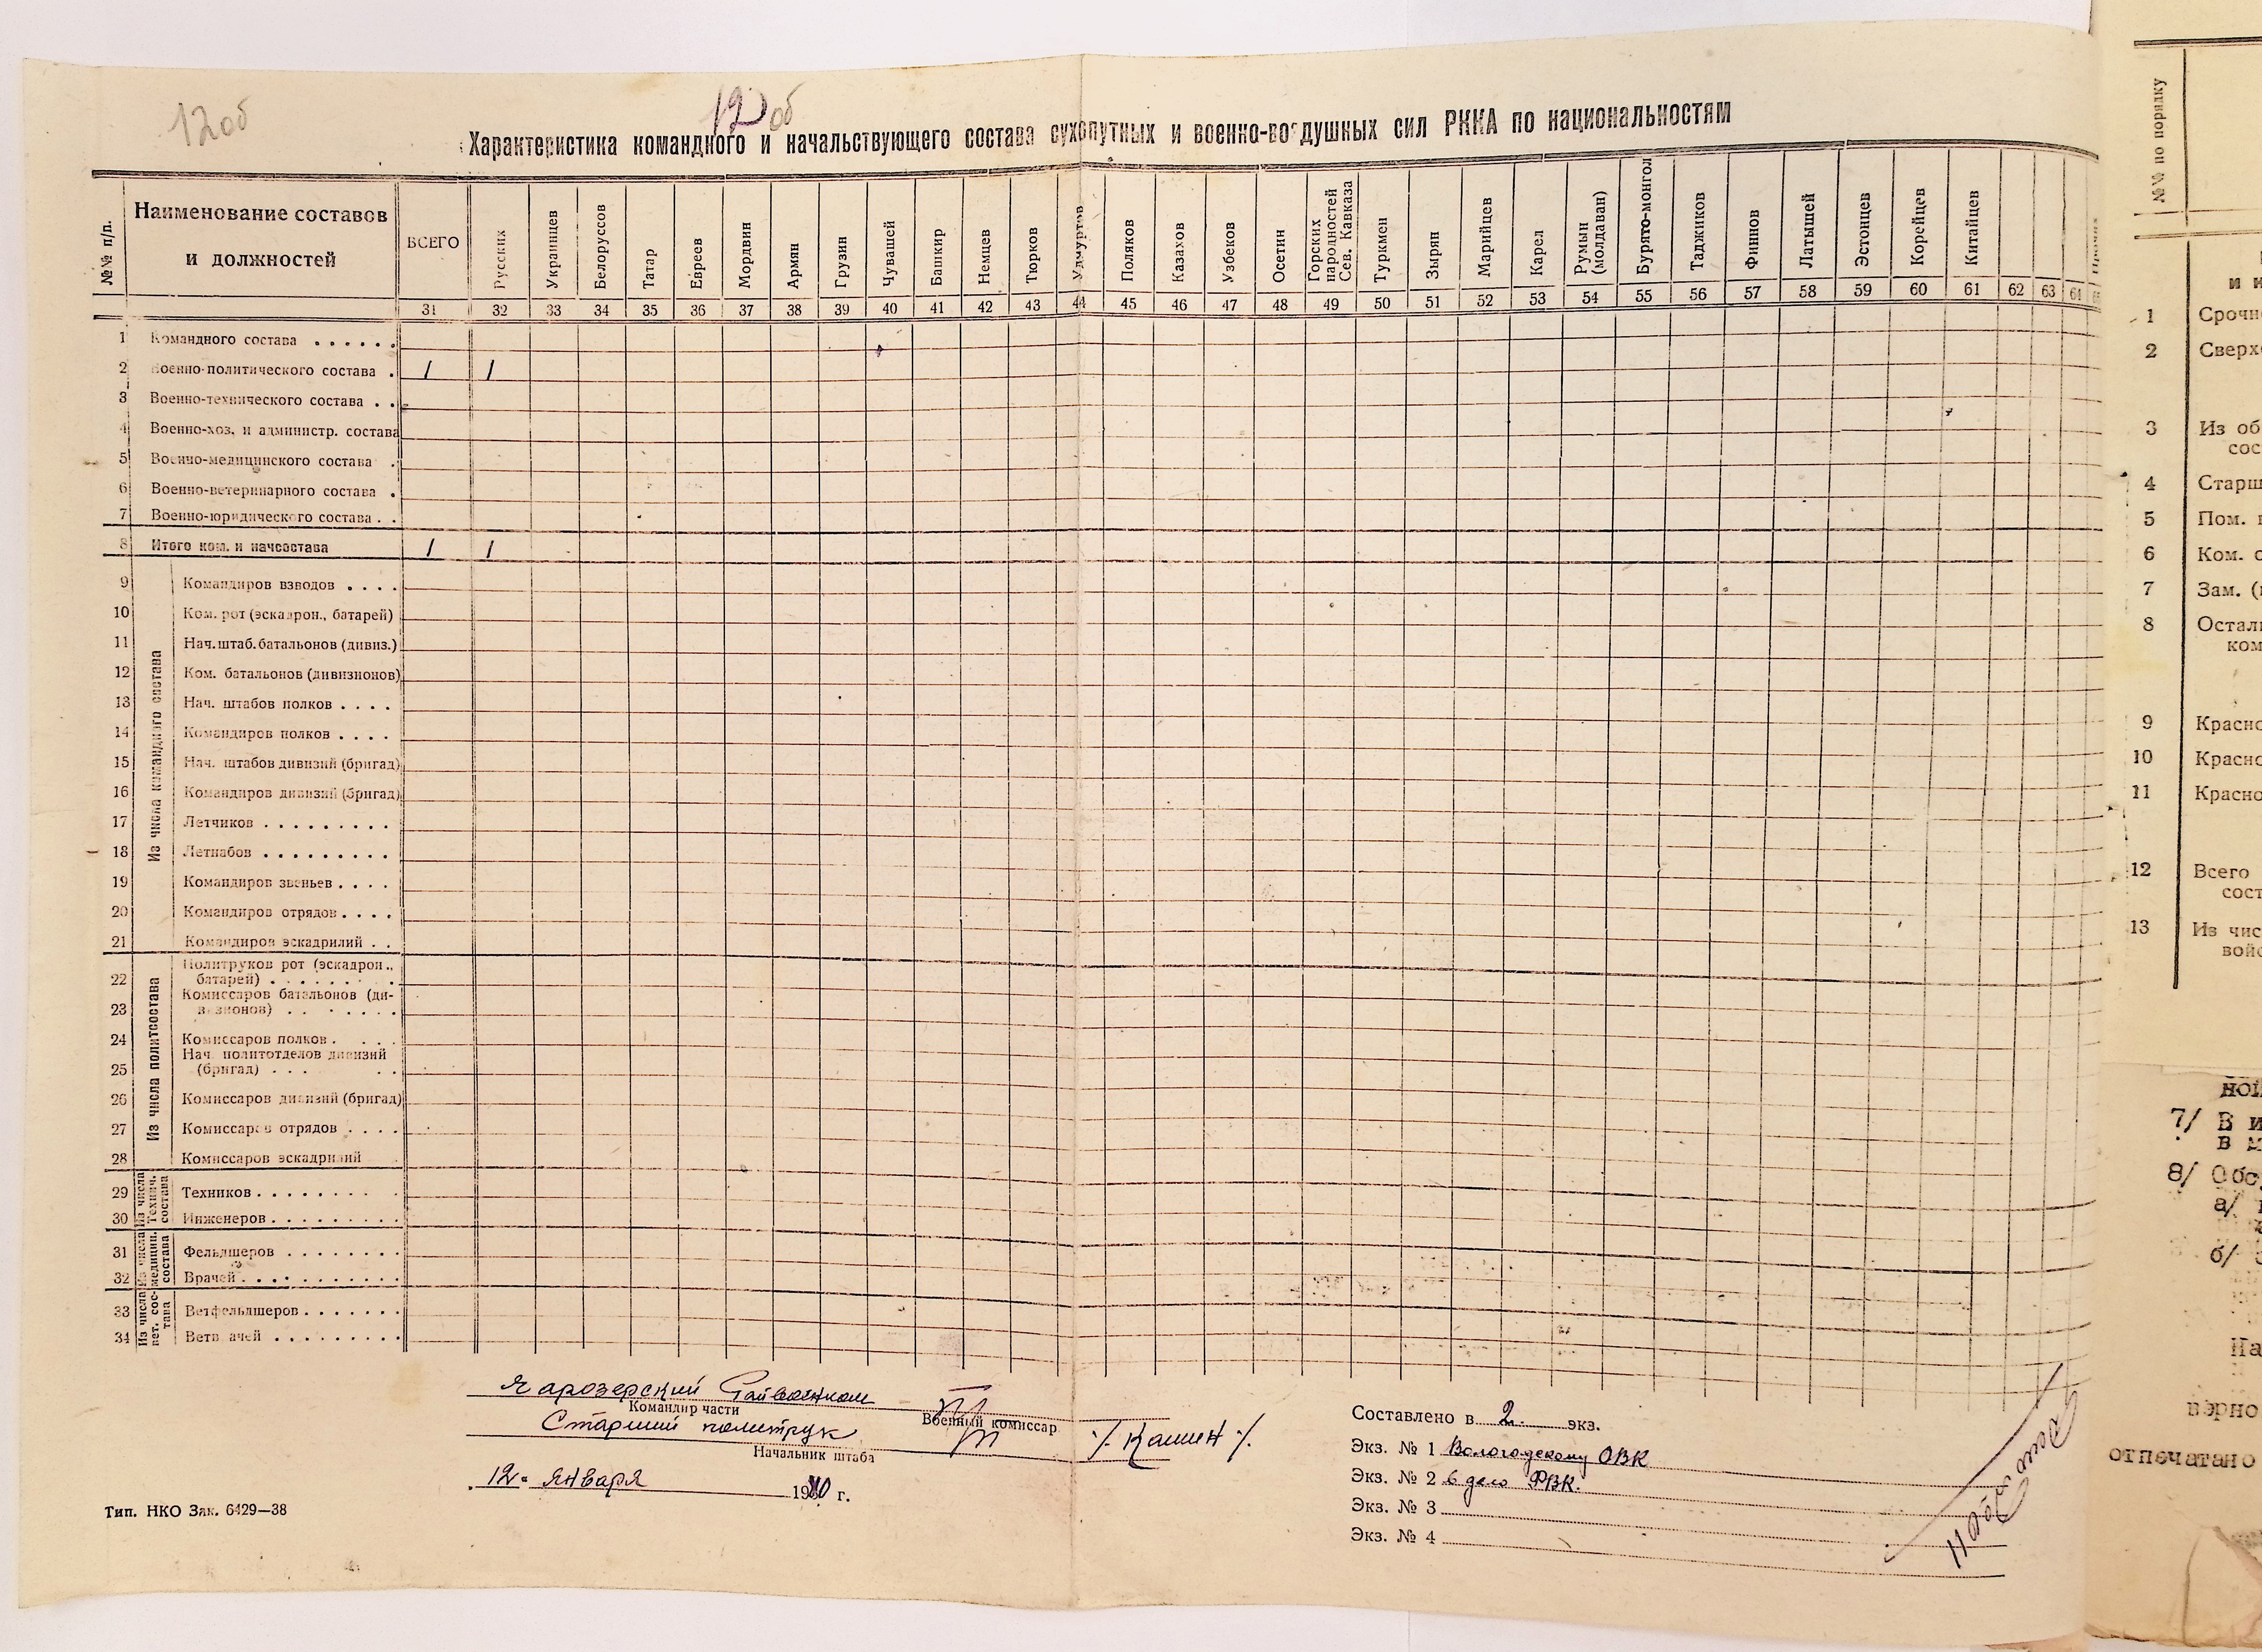 12об 12об
Характеристика командного и начальствующего состава сухопутных и военно-воздушных сил РККА по национальностям
№№ п/п. Наименование составов и должностей ВСЕГО Русских Украинцев Белоруссов Татар Евреев Мордвин Армян Грузин Чувашей Башкир Немцев Тюрков Удмуртов Поляков Казахов Узбеков Осетин Горских народностей Сев. Кавказа Туркмен Зырян Марийцев Карел Румын (молдаван) Бурято-монгол Таджиков Финнов Латышей Эстонцев Корейцев Китайцев
31 32 33 34 35 36 37 38 39 40 41 42 43 44 45 46 47 48 49 50 51 52 53 54 55 56 57 58 59 60 61 62 63 64
1 Командного состава . . . . . .
2 Военно-политического состава . 1 1
3 Военно-технического состава . .
4 Военно-хоз. и администр. состава
5 Военно-медицинского состава .
6 Военно-ветеринарного состава .
7 Военно-юридического состава . .
8 Итого ком. и начсостава 1 1
Из числа командного состава
9 Командиров взводов . . . .
10 Ком. рот (эскадрон., батарей)
11 Нач. штаб. батальонов (дивиз.)
12 Ком. батальонов (дивизионов)
13 Нач. штабов полков . . . .
14 Командиров полков . . . .
15 Нач. штабов дивизий (бригад)
16 Командиров дивизий (бригад)
17 Летчиков . . . . . . . . .
18 Летнабов . . . . . . . . .
19 Командиров звеньев . . . .
20 Командиров отрядов . . . .
21 Командиров эскадрилий . .
Из числа политсостава
22 Политруков рот (эскадрон., батарей) . . . . . . .
23 Комиссаров батальонов (дивизионов) . . . . . . .
24 Комиссаров полков . . . .
25 Нач. политотделов дивизий (бригад) . . . . .
26 Комиссаров дивизий (бригад)
27 Комиссаров отрядов . . . .
28 Комиссаров эскадрилий
Из числа Технич. состава
29 Техников . . . . . . . . .
30 Инженеров . . . . . . . . .
Из числа медицин. состава
31 Фельдшеров . . . . . . . .
32 Врачей . . . . . . . . . . .
Из числа вет. состава
33 Ветфельдшеров . . . . . . .
34 Ветв ачей . . . . . . . . .
Чарозерский Райвоенком
Командир части Военный комиссар
Старший политрук /Кашин/.
Начальник штаба
12 января 1940 г.
Тип. НКО Зак. 6429—38
Составлено в 2. экз.
Экз. № 1 Вологодскому ОВК
Экз. № 2 в дело РВК.
Экз. № 3
Экз. № 4
№№ по порядку
и н
1 Срочн
2 Сверх
3 Из об
сос
4 Старш
5 Пом.
6 Ком. о
7 Зам. (
8 Остал
ком
9 Красно
10 Красно
11 Красно
12 Всего
сост
13 Из чис
войс
ной
7/ В и
в
8/ Обс
а/
б/
На
верно
отпечатано